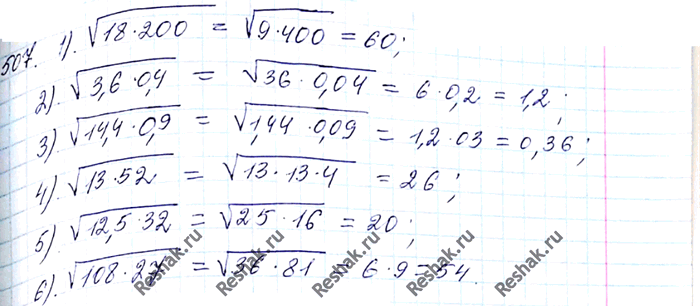 507. 1). √18·200 = √9·400 = 60;
2). √3,6·0,4 = √36·0,04 = 6·0,2 = 1,2;
3). √14,4·0,9 = √1,44·0,09 = 1,2·03 = 0,36;
4). √13·52 = √13·13·4 = 26;
5). √12,5·32 = √25·16 = 20;
6). √108·27 = √36·81 = 6·9 = 54.
Reshak.ru
Reshak.ru
Reshak.ru
Reshak.ru